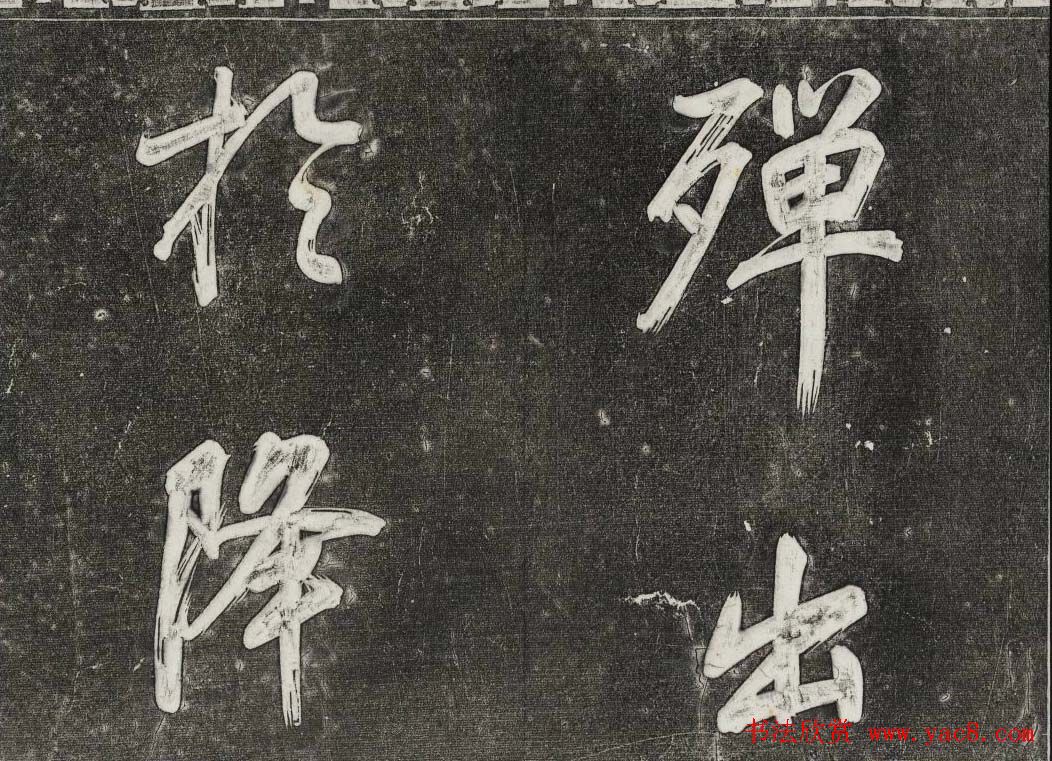 殫出
於降
书法欣赏 www.yac8.com